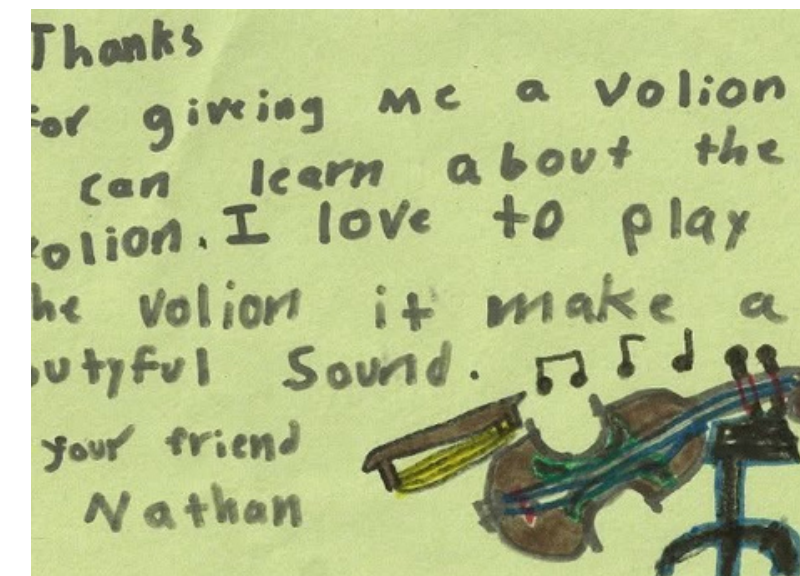 Thanks
for giveing me a volion
can learn about the
volion. I love to play
he volion it make a
utyful Sound.
your friend
Nathan